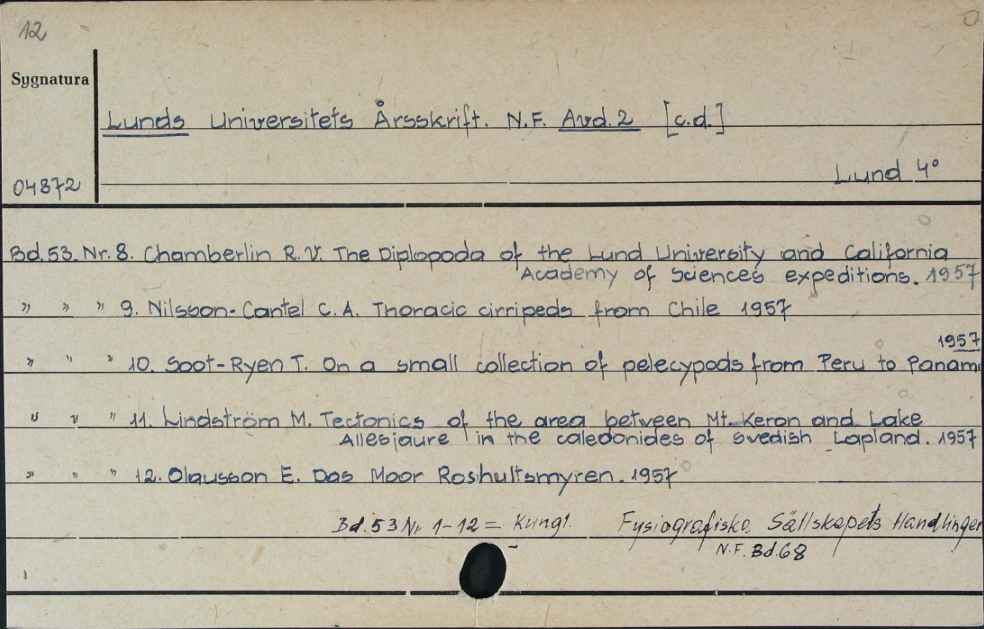 12
Sygnatura
Lunds Universitets Årsskrift. N.F. Avd. 2 [c.d.]
04872
Lund 4°
Bd. 53. Nr. 8. Chamberlin R.V. The Diplopoda of the Lund University and California
Academy of Sciences expeditions. 1957
" " " 9. Nilsson-Cantel C.A. Thoracic cirripeds from Chile 1957
1957
" " " 10. Soot-Ryen T. On a small collection of pelecypods from Peru to Panam
" " " 11. Lindström M. Tectonics of the area between Mt. Keron and Lake
Allesjaure in the caledonides of Svedish Lapland. 1957
" " " 12. Olausson E. Das Moor Roshultsmyren. 1957
Bd. 53 Nr 1-12 = Kungl. Fysiografiska Sällskapets Handlinger
N.F. Bd. 68